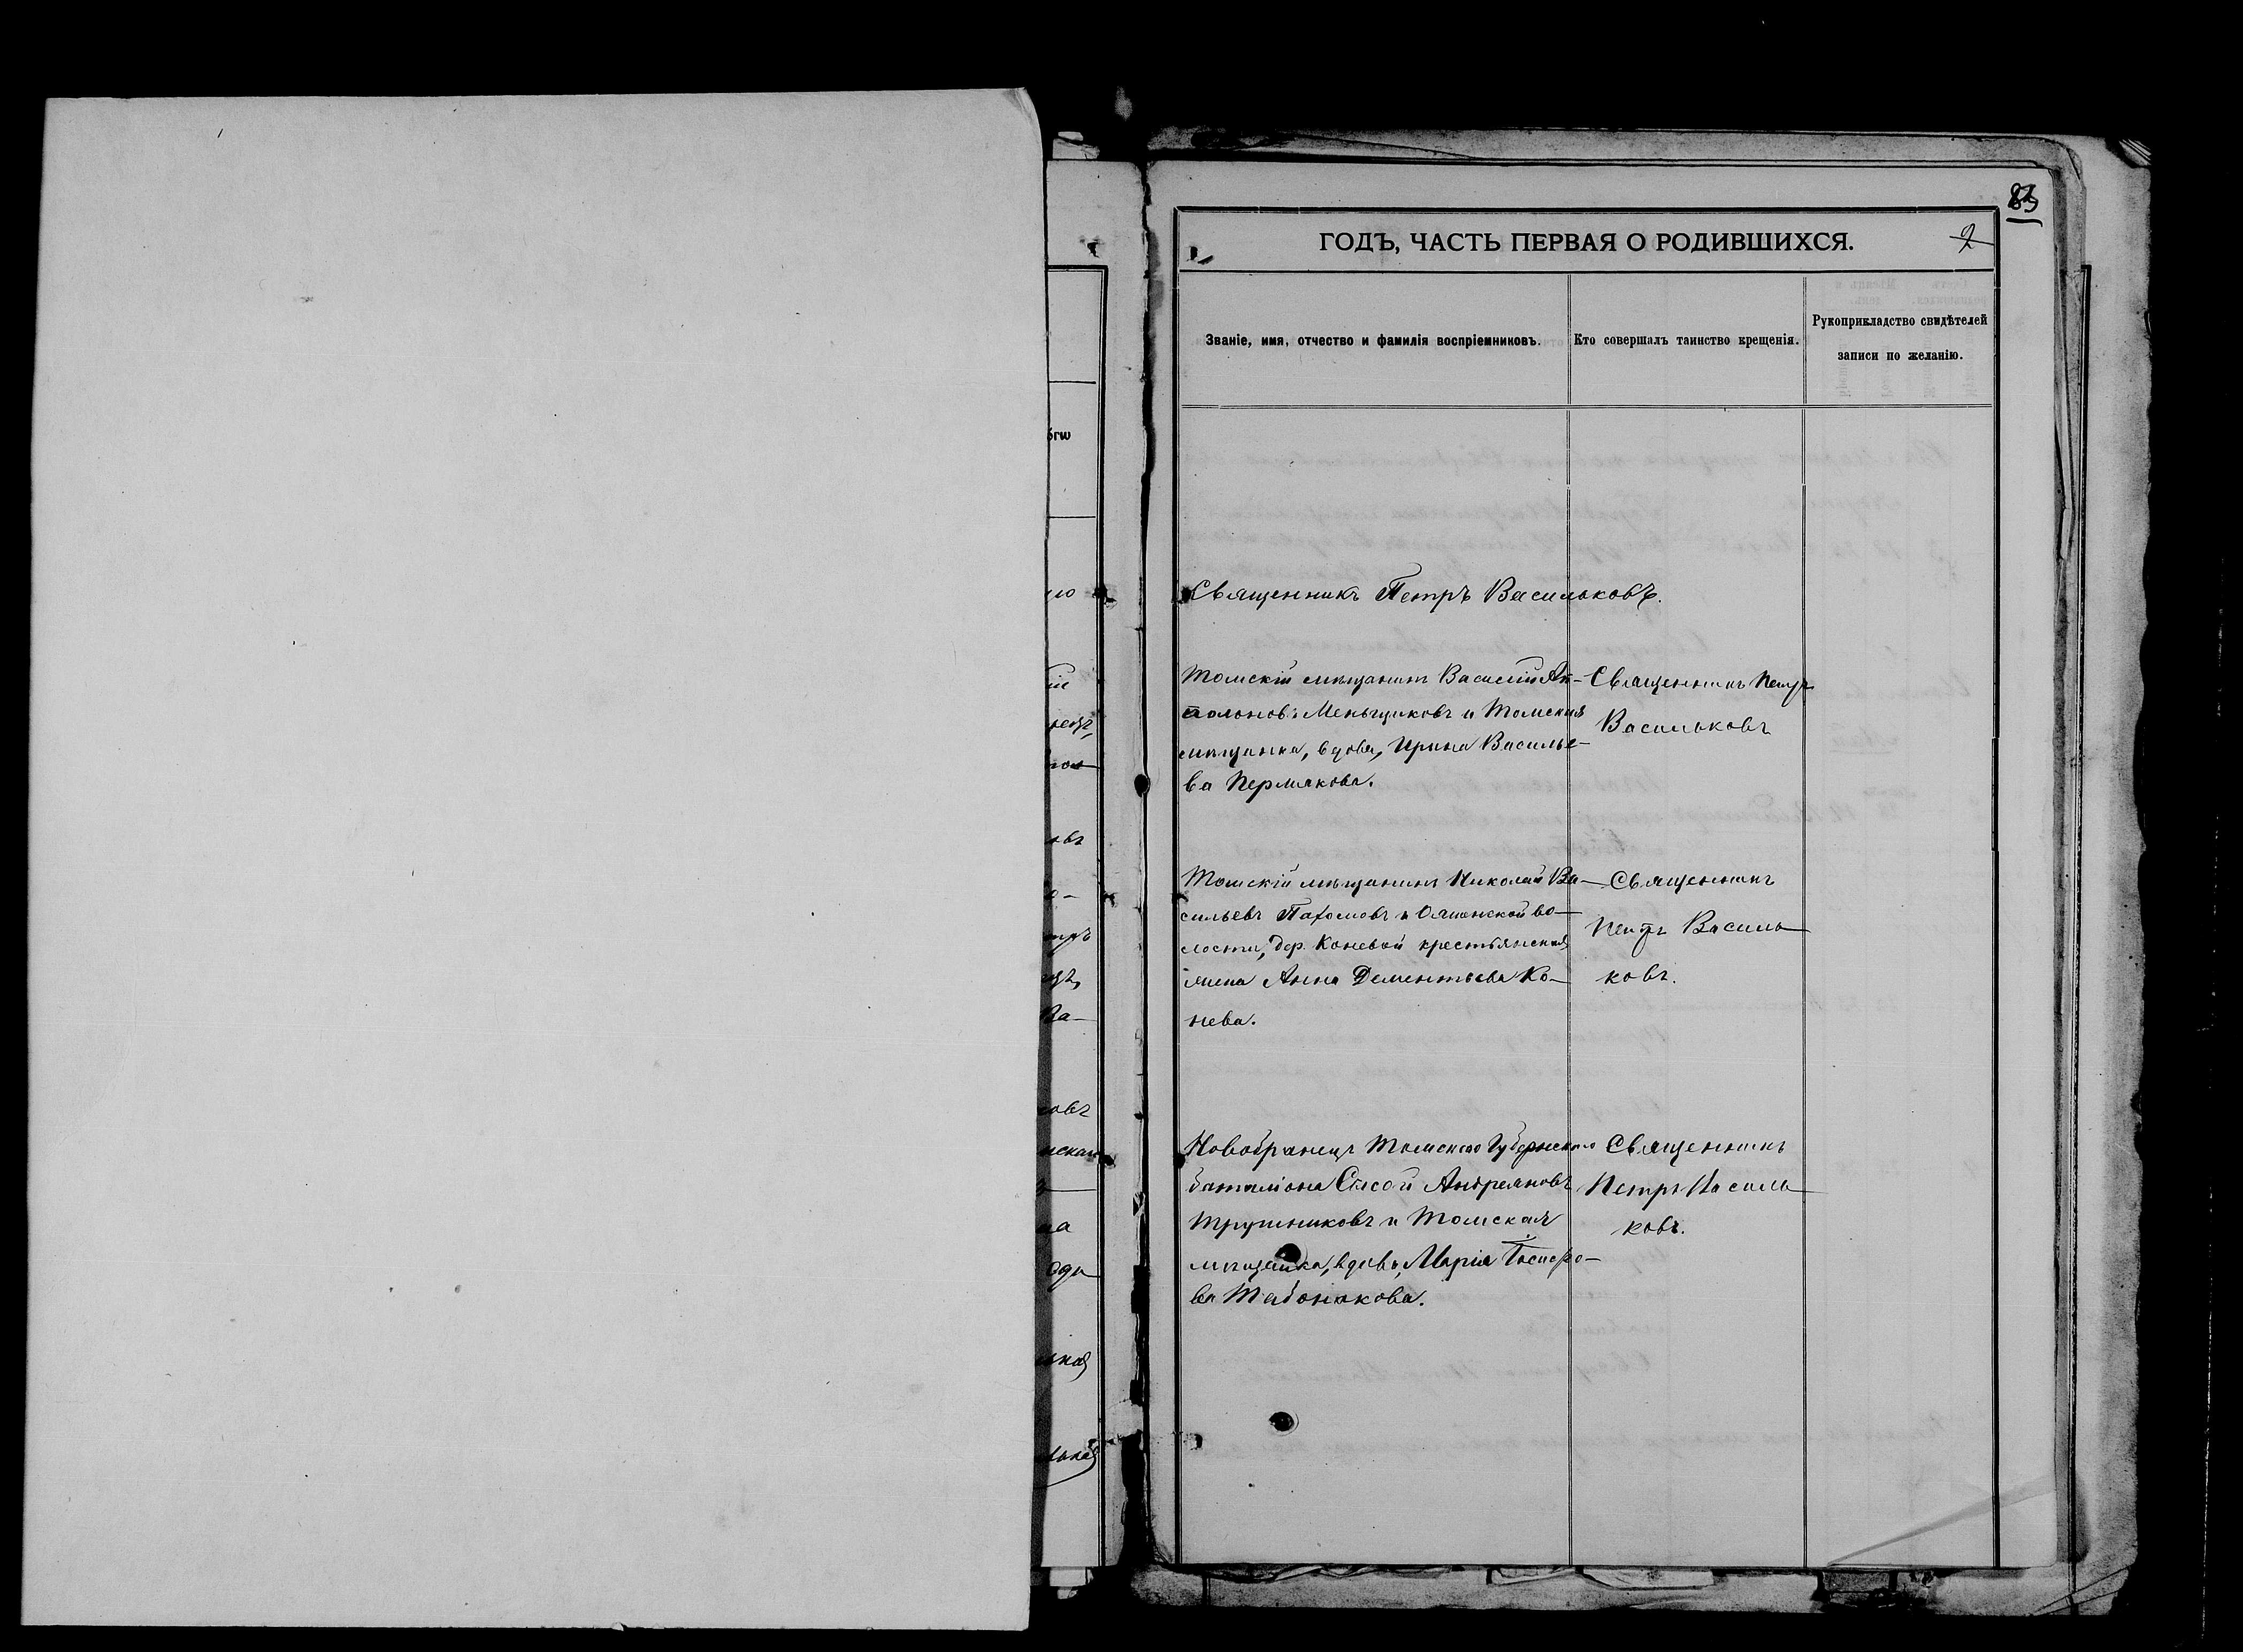 83
ГОДЪ, ЧАСТЬ ПЕРВАЯ О РОДИВШИХСЯ.
2
Званіе, имя, отчество и фамилія воспріемниковъ.
Кто совершалъ таинство крещенія.
Рукоприкладство свидѣтелей
записи по желанію.
Священникъ Петръ Васильковъ.
Томскій мѣщанинъ Василій Ап-
полоновъ Меньщиковъ и Томская
мѣщанка, вдова, Ирина Василье-
ва Пермякова.
Священникъ Петръ
Васильковъ
Томскій мѣщанинъ Николай Ва-
сильевъ Пахомовъ и Ояшинской во-
лости, дер. Коневой крестьянская
жена Анна Дементьева Ко-
нева.
Священникъ
Петръ Василь-
ковъ.
Новобранецъ Томскаго Губернскаго
баталіона Сысой Андреяновъ
Трушниковъ и Томская
мѣщанка, вдова, Марія
ва Табонакова.
Священникъ
Петръ Василь-
ковъ.